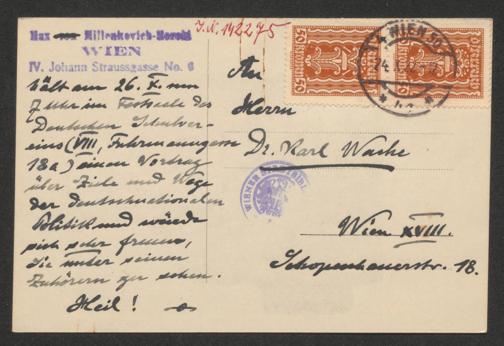 Max von Millenkovich-Morold
WIEN
IV. Johann Straussgasse No. 6
J.N. 142275
hält am 26. X. um
7 Uhr im Festsaale des
Deutschen Schulver-
eins (VIII, Fuhrmannsgasse
18a) einen Vortrag
über Ziele und Wege
der deutschnationalen
Politik und würde
sich sehr freuen,
Sie unter seinen
Zuhörern zu sehen.
Heil!
An
Herrn
Dr. Karl Wache
Wien XVIII.
Schopenhauerstr. 18.
WIEN
50 50